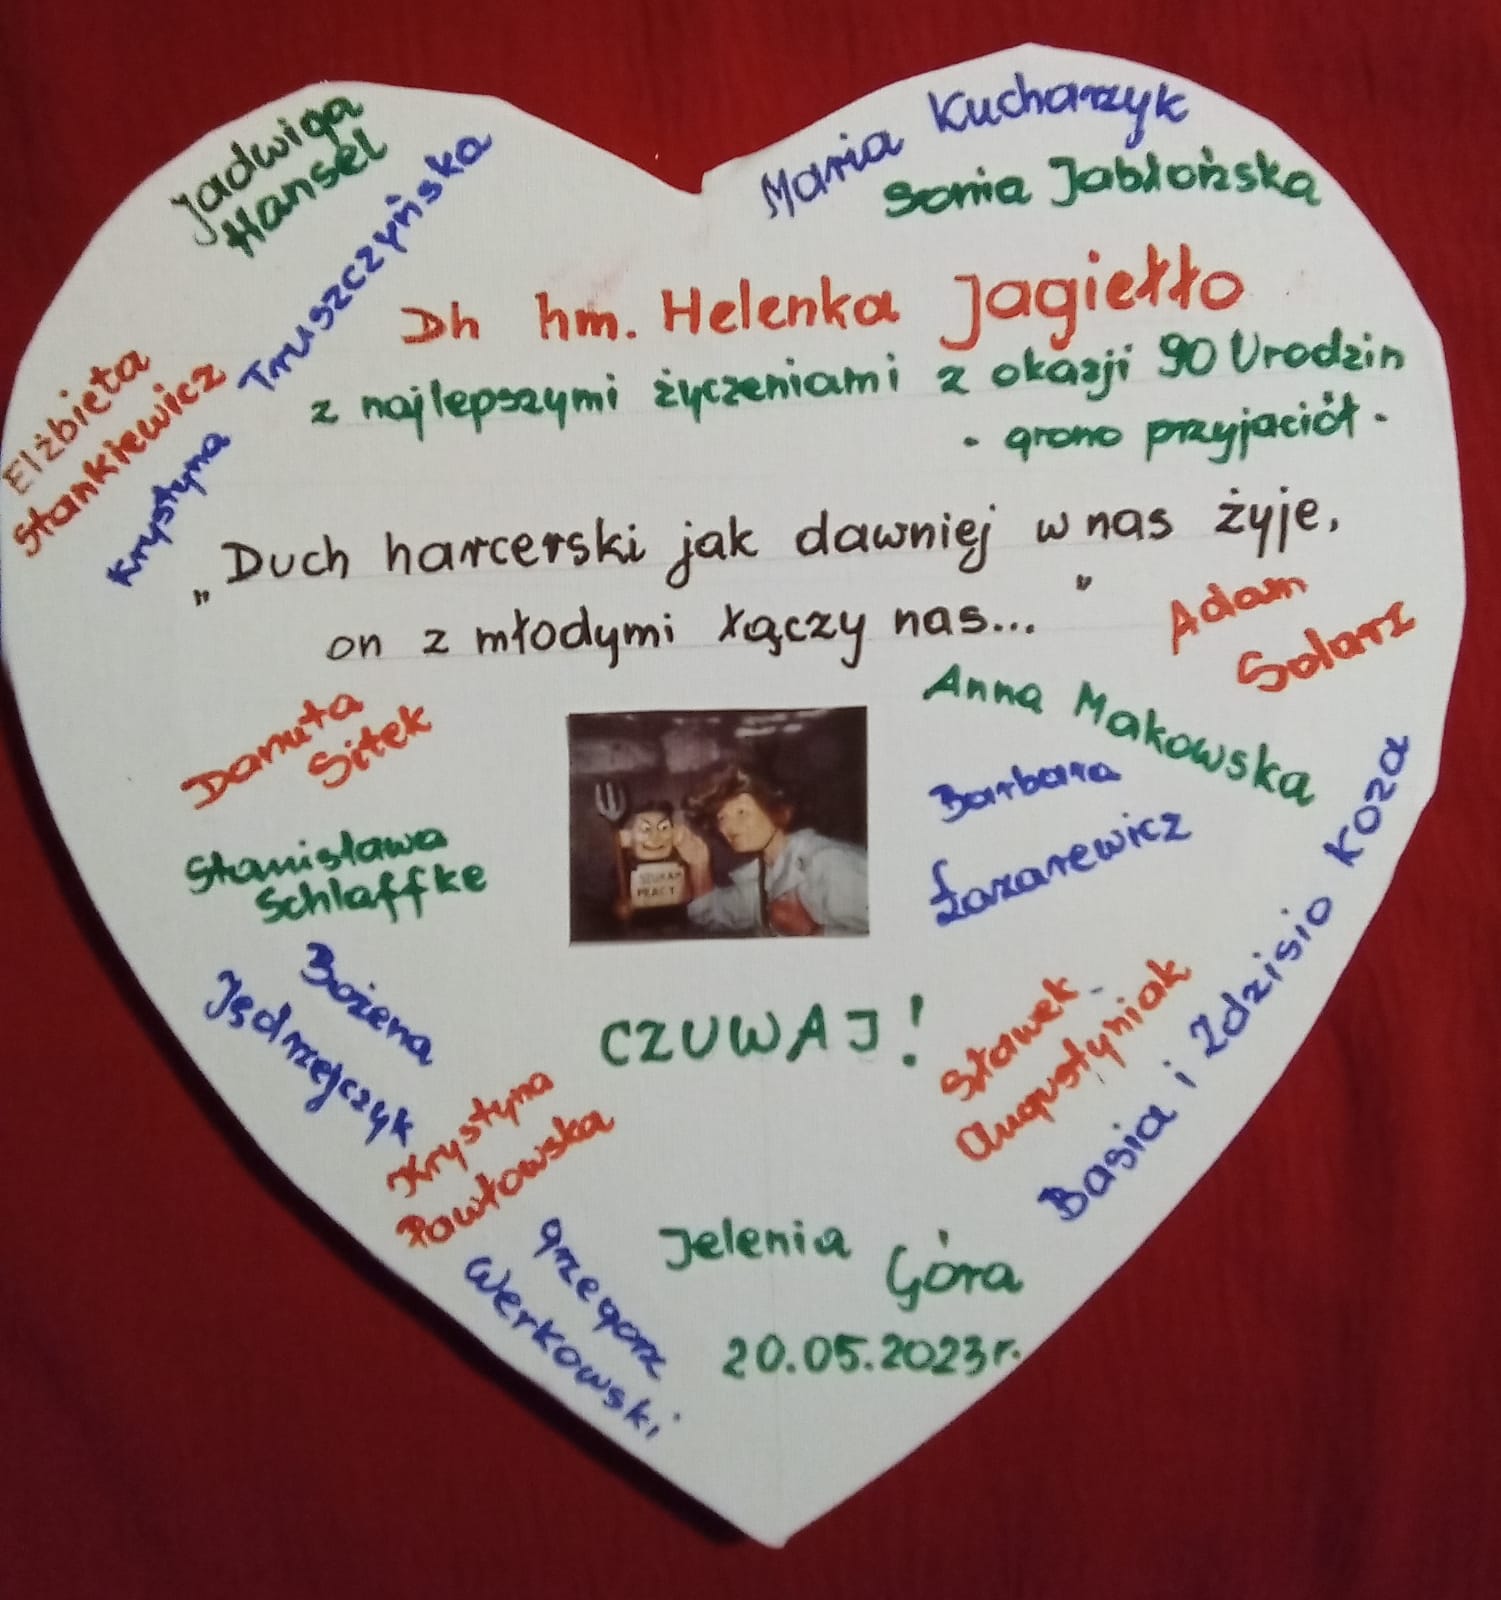 Jadwiga
Hansel
Maria Kucharzyk
Sonia Jabłońska
Krystyna Truszczyńska
Elżbieta
Stankiewicz
Dh hm. Helenka Jagiełło
z najlepszymi życzeniami z okazji 90 Urodzin
- grono przyjaciół -
„Duch harcerski jak dawniej w nas żyje,
on z młodymi łączy nas..."
Adam
Solarz
Danuta
Sitek
Anna Makowska
Barbara
Łazarewicz
Stanisława
Schlaffke
SZUKAM
PRACY
Bożena
Jędrzejczyk
CZUWAJ!
Sławek
Augustyniak
Basia i Zdzisio Koza
Krystyna
Pawłowska
Grzegorz
Werkowski
Jelenia Góra
20.05.2023r.